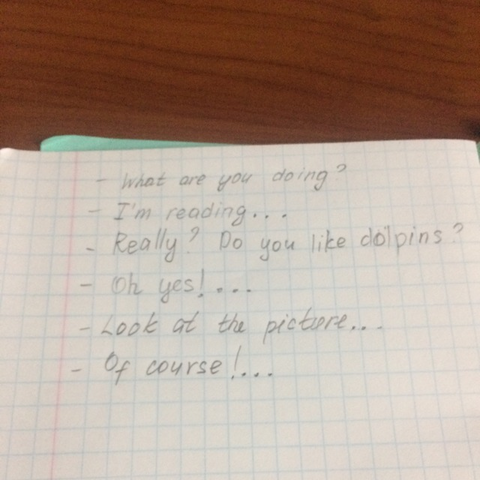 - What are you doing?
- I'm reading...
- Really? Do you like dolpins?
- Oh yes!...
- Look at the picture...
- Of course!...